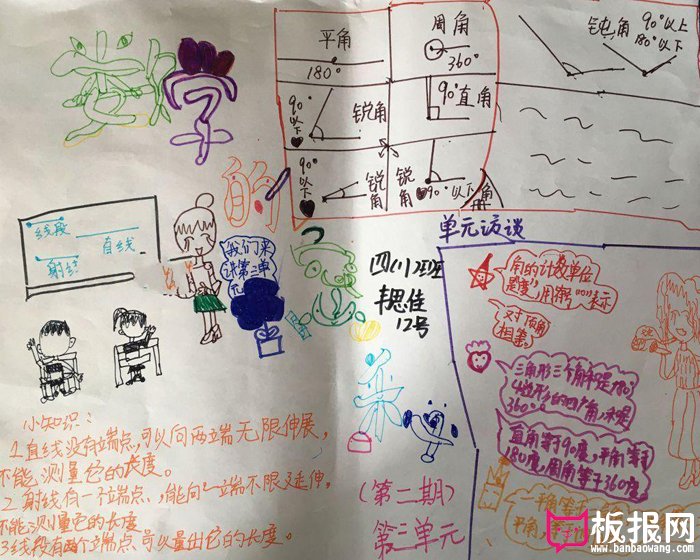 数学
的
平角
180°
周角
360°
钝角
90°以上
180°以下
90°以下
锐角
90°直角
90°以下
锐角
锐角
90°以下
线段
直线
射线
我们来
讲第三单
元
四(1)班
12号
单元访谈
角的计数单位
是度,用符号"°"表示
对顶角
相等。
三角形三个角和是180°
四边形的四个角和是
360°
直角等于90度,平角等于
180度,周角等于360度。
小知识:
1.直线没有端点,可以向两端无限伸展,
不能测量它的长度。
2.射线有一个端点,能向一端不限延伸。
不能测量它的长度
3.线段有两个端点,可以量出它的长度。
(第二期)
第三单元
平角等于
平角,
板报网
www.banbaowang.com